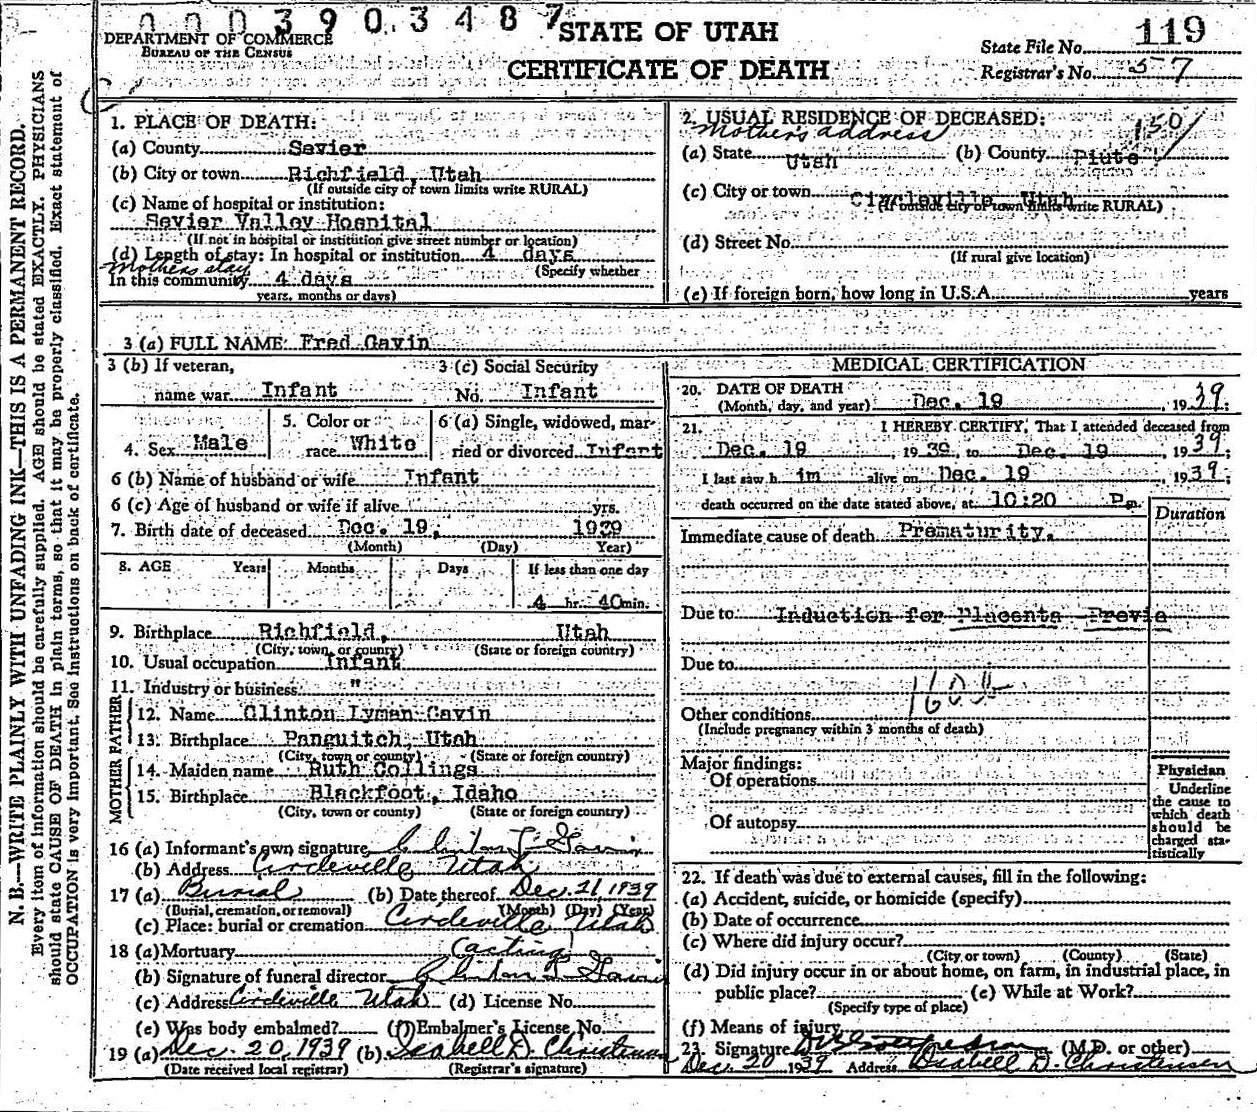 0003903487
STATE OF UTAH
119
DEPARTMENT OF COMMERCE
BUREAU OF THE CENSUS
State File No.
CERTIFICATE OF DEATH
Registrar's No. 57
N. B.—WRITE PLAINLY WITH UNFADING INK—THIS IS A PERMANENT RECORD.
Every item of information should be carefully supplied. AGE should be stated EXACTLY. PHYSICIANS
should state CAUSE OF DEATH in plain terms, so that it may be properly classified. Exact statement of
OCCUPATION is very important. See instructions on back of certificate.
1. PLACE OF DEATH:
(a) County Sevier
(b) City or town Richfield, Utah
(If outside city of town limits write RURAL)
(c) Name of hospital or institution:
Sevier Valley Hospital
(If not in hospital or institution give street number or location)
(d) Length of stay: In hospital or institution 4 days
Mothers stay
(Specify whether
In this community 4 days
years, months or days)
2. USUAL RESIDENCE OF DECEASED:
Mothers address
150
(a) State Utah (b) County Piute
(c) City or town Circleville Utah
(If outside city of town limits write RURAL)
(d) Street No.
(If rural give location)
(e) If foreign born, how long in U.S.A. years
3 (a) FULL NAME: Fred Gavin
3 (b) If veteran, name war Infant
3 (c) Social Security No. Infant
4. Sex Male
5. Color or race White
6 (a) Single, widowed, married or divorced Infant
6 (b) Name of husband or wife Infant
6 (c) Age of husband or wife if alive yrs.
7. Birth date of deceased Dec. 19, 1939
(Month) (Day) Year)
8. AGE Years Months Days If less than one day
4 hr. 40 min.
9. Birthplace Richfield, Utah
(City, town, or county) (State or foreign country)
10. Usual occupation Infant
11. Industry or business "
FATHER
12. Name Clinton Lyman Gavin
13. Birthplace Panguitch, Utah
(City, town or county) (State or foreign country)
MOTHER
14. Maiden name Ruth Collings
15. Birthplace Blackfoot, Idaho
(City, town or county) (State or foreign country)
16 (a) Informant's own signature Clinton L. Gavin
(b) Address Circleville Utah
17 (a) Burial (b) Date thereof Dec. 21, 1939
(Burial, cremation, or removal) (Month) (Day) (Year)
(c) Place: burial or cremation Circleville Utah
18 (a) Mortuary (acting)
(b) Signature of funeral director Clinton L. Gavin
(c) Address Circleville Utah (d) License No.
(e) Was body embalmed? (f) Embalmer's License No.
19 (a) Dec. 20, 1939 (b) Isabell D. Christensen
(Date received local registrar) (Registrar's signature)
MEDICAL CERTIFICATION
20. DATE OF DEATH
(Month, day, and year) Dec. 19, 1939;
21. I HEREBY CERTIFY, That I attended deceased from
Dec. 19, 1939, to Dec. 19, 1939;
I last saw h im alive on Dec. 19, 1939;
death occurred on the date stated above, at 10:20 P m.
Duration
Immediate cause of death Prematurity.
Due to Induction for Placenta Previa
Due to
160
Other conditions
(Include pregnancy within 3 months of death)
Major findings:
Of operations
Of autopsy
Physician
Underline
the cause to
which death
should be
charged sta-
tistically
22. If death was due to external causes, fill in the following:
(a) Accident, suicide, or homicide (specify)
(b) Date of occurrence
(c) Where did injury occur?
(City or town) (County) (State)
(d) Did injury occur in or about home, on farm, in industrial place, in
public place? (e) While at Work?
(Specify type of place)
(f) Means of injury
23. Signature (M.D. or other)
Dec. 20 1939 Address Isabell D. Christensen